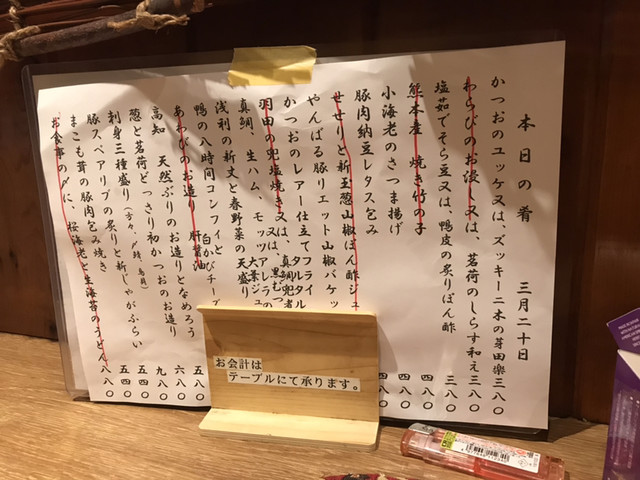 本日の肴 三月二十日
かつおのユッケ又は、ズッキーニ木の芽田楽 三八〇
わらびのお浸し又は、茗荷のしらす和え 三八〇
塩茹でそら豆又は、鴨皮の炙りぽん酢 三八〇
熊本産 焼き竹の子 四八〇
小海老のさつま揚げ 四八〇
豚肉納豆レタス包み 四八〇
せせりと新玉葱山椒ぽん酢ジュ
やんばる豚リエット山椒バゲッ
かつおのレアー仕立てフライ タルタル
羽田の兜塩焼き又は、真鯛兜煮 又は、黒むつ
真鯛、生ハム、モッツアレラの 大葉ジュ
浅利の新丈と春野菜の天盛り
鴨の八時間コンフィと 白かびチーズ
あわびのお造り 肝醤油 五八〇
高知 天然ぶりのお造りとなめろう 六八〇
葱と茗荷どっさり初かつおのお造り 九八〇
刺身三種盛り
豚スペアリブの炙りと新じゃがふらい 五四〇
まこも茸の豚肉包み焼き 五四〇
お食事の〆に、桜海老と生海苔のうどん 八八〇
お会計は
テーブルにて承ります。